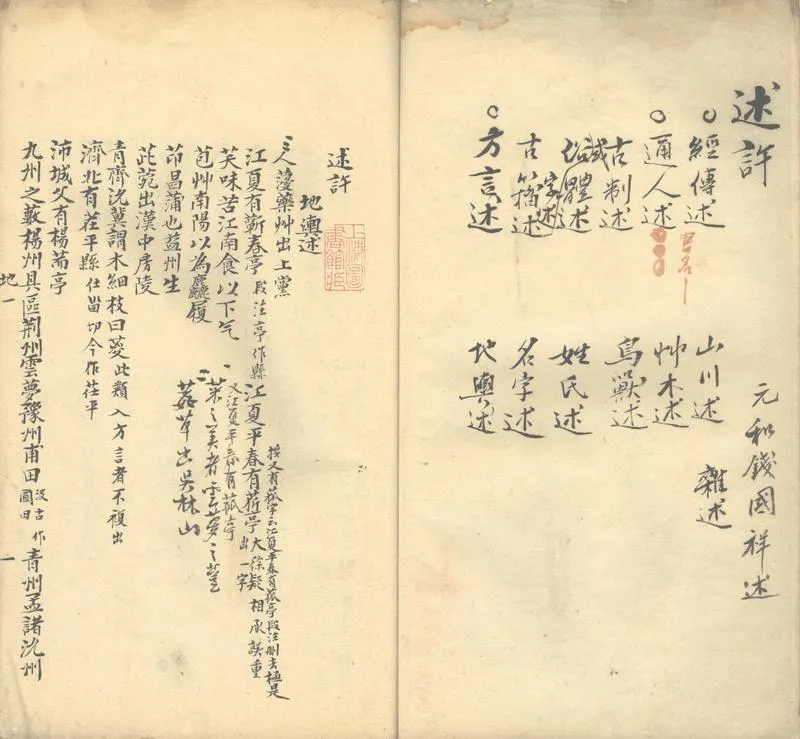 述許
○經傳述
○通人述
古制述
字體述
古籀述
○方言述
山川述
艸木述
鳥獸述
姓氏述
名字述
地輿述
雜述
元和錢國祥述
述許
地輿述
上海圖書館藏
人薓藥艸出上黨
江夏有蘄春亭 段注亭作縣 江夏平春有菥亭 大徐疑相承誤重出一字
按又有菰字云江夏平春有菰亭段注刪去極是
又江夏平春有菰亭
芺味苦江南食以下气
菜之美者雲夢之䔇
苞艸南陽以爲麤履
葌草出吳林山
茚昌蒲也益州生
茈菀出漢中房陵
青齊沇冀謂木細枝曰葼此類入方言者不複出
濟北有茬平縣 仕甾切今作茌平
沛城父有楊萹亭
九州之藪楊州具區荆州雲夢豫州甫田 汲古作圃田 青州孟諸沇州
地一
一